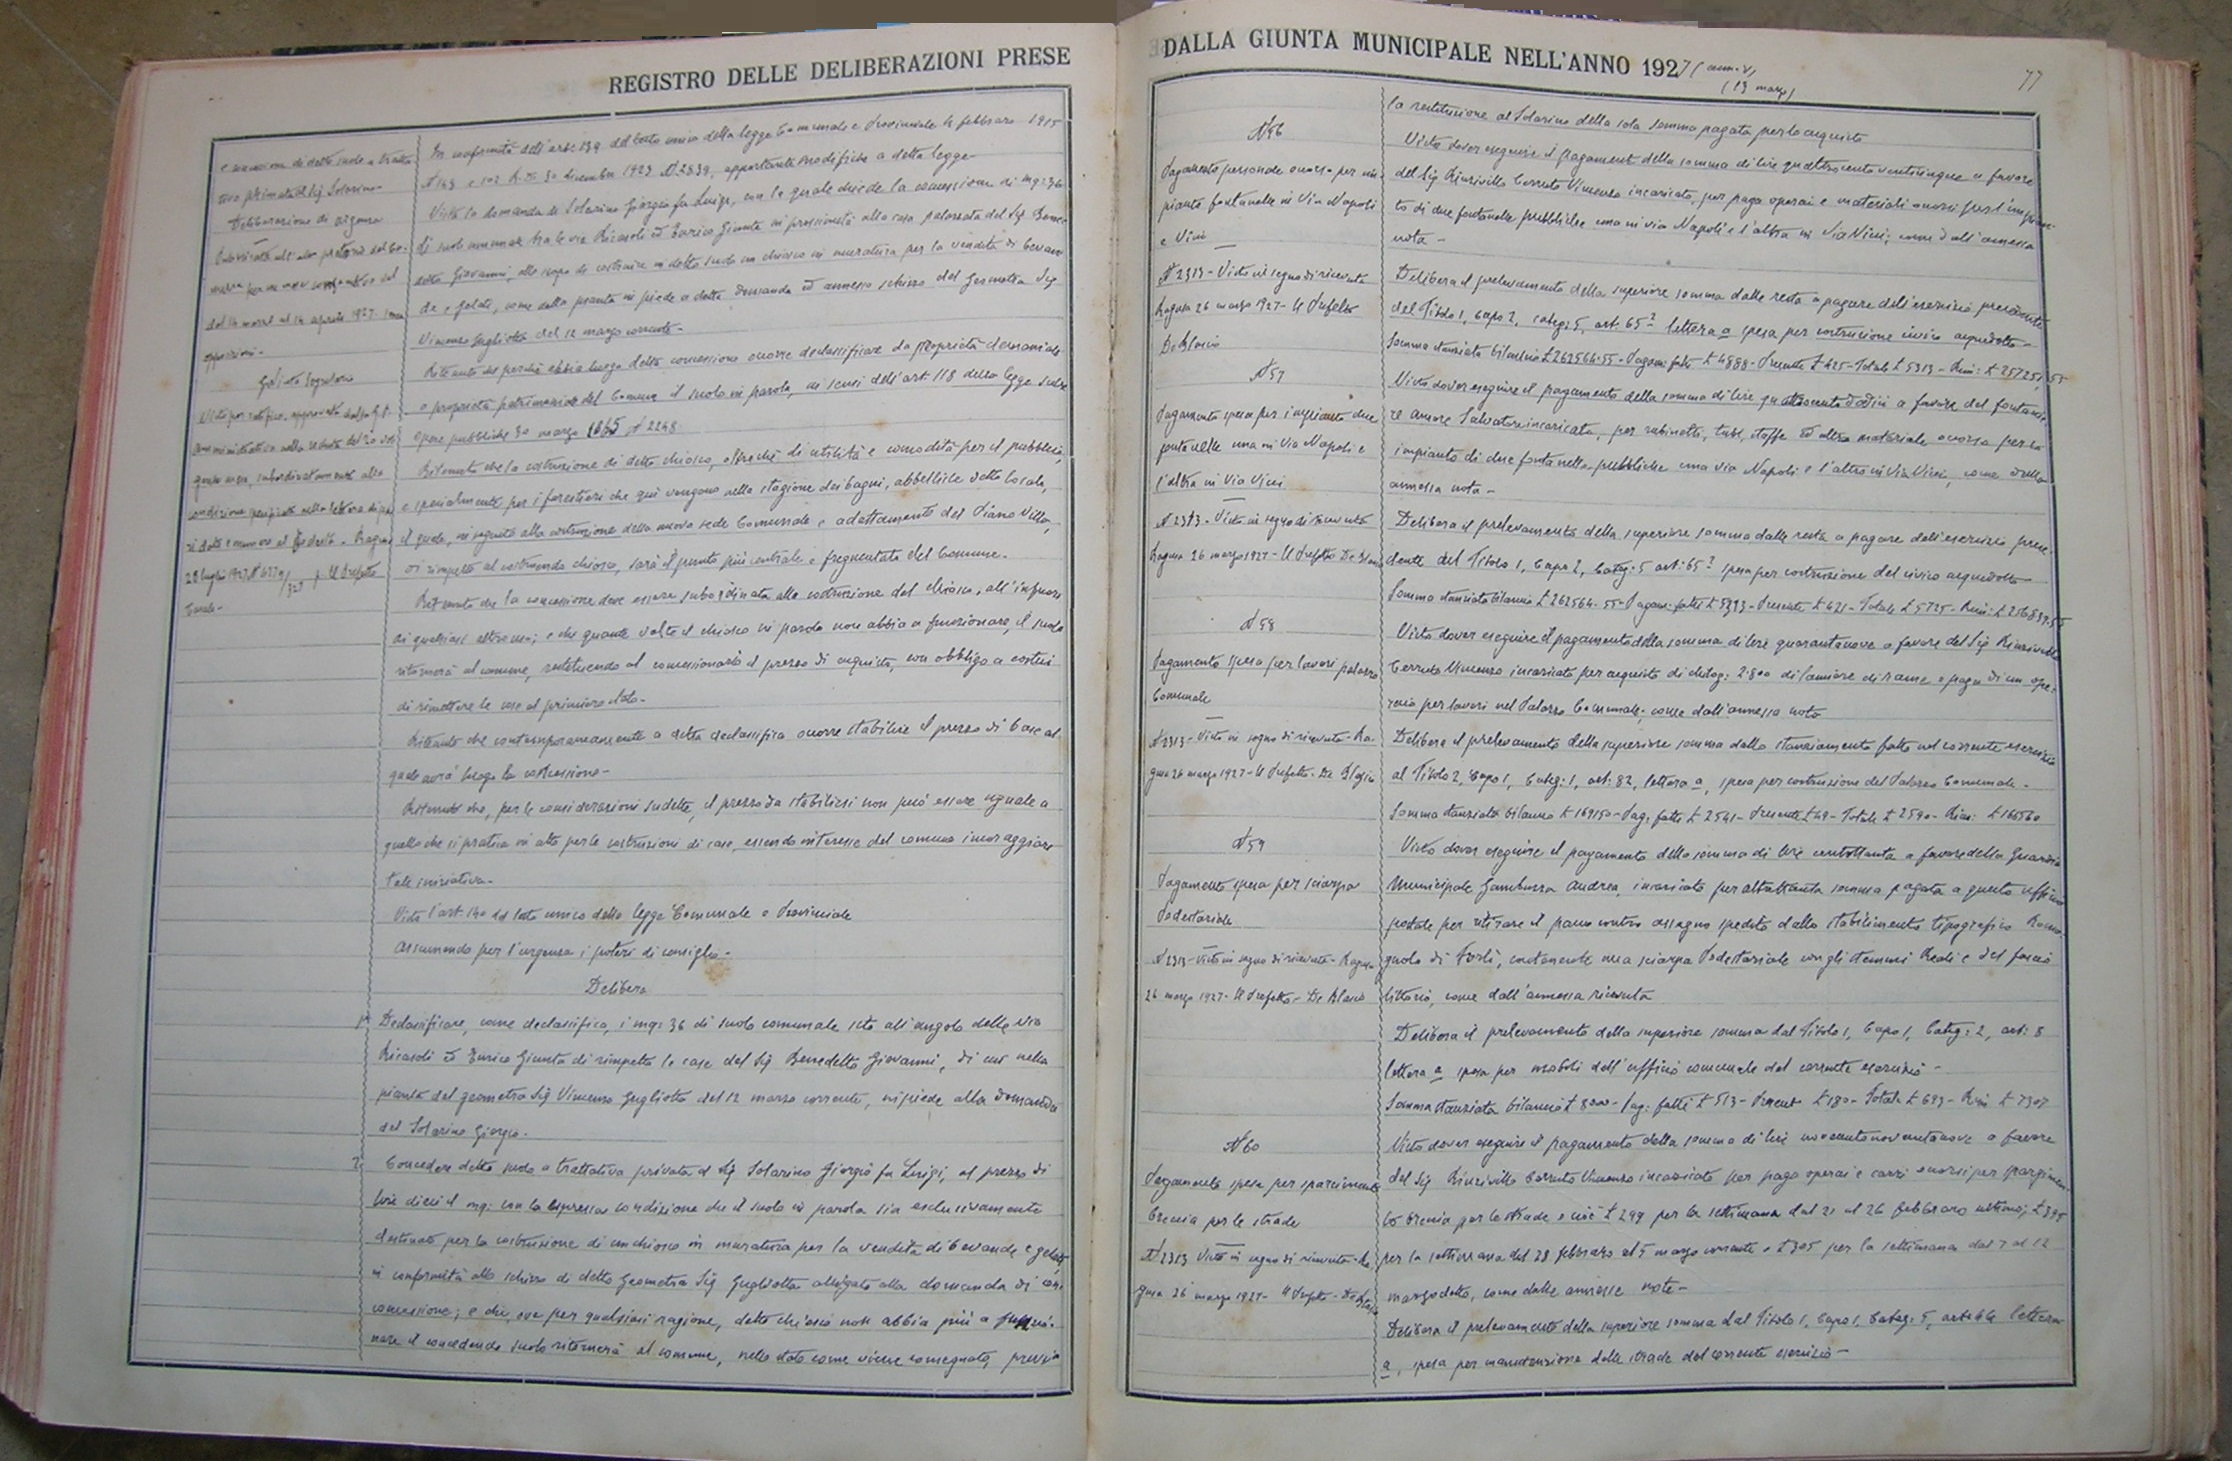 REGISTRO DELLE DELIBERAZIONI PRESE
e di detto suolo a tratta
tiva privata al Sig Solarino
Deliberazione di urgenza
dal 14 marzo al 14 aprile 1927
opposizioni -
Il Segretario
In conformità dell'art. 139 del testo unico della legge Comunale e Provinciale 4 febbraio 1915
N 148 e 102 R.D. 30 dicembre 1923 N 2839, apportante modifiche a detta legge -
Vista la domanda di Solarino Giorgio fu Luigi, con la quale chiede la concessione di mq: 36
di suolo comunale tra le vie Ricasoli ed Enrico Giunta in prossimità alla casa palazzata del Sig Bene-
detto Giovanni, allo scopo di costruire in detto suolo un chiosco in muratura per la vendita di bevan-
de e gelati, come dalla pianta in piede a detta domanda ed annesso schizzo del Geometra Sig
Vincenzo Gugliotta del 12 marzo corrente -
Ritenuto che perchè abbia luogo detta concessione occorre declassificare da proprietà demaniale
a proprietà patrimoniale del Comune il suolo in parola, ai sensi dell'art 118 della legge sulle
opere pubbliche 20 marzo 1865 N 2248
Ritenuto che la costruzione di detto chiosco, oltrechè di utilità e comodità per il pubblico,
e specialmente per i forestieri che quì vengono nella stagione dei bagni, abbellisce detto locale,
il quale, in seguito alla costruzione della nuova sede Comunale e adattamento del Piano Villa,
di rimpetto al costruendo chiosco, sarà il punto più centrale e frequentato del Comune -
Ritenuto che la concessione deve essere subordinata alla costruzione del chiosco, all'infuori
di qualsiasi altro uso; e che quante volte il chiosco in parola non abbia a funzionare, il suolo
ritornerà al comune, restituendo al concessionario il prezzo di acquisto, con obbligo a costui
di rimettere le cose al primiero stato -
Ritenuto che contemporaneamente a detta declassifica occorre stabilire il prezzo di base al
quale avrà luogo la concessione -
Ritenuto che, per le considerazioni sudette, il prezzo da stabilirsi non può essere uguale a
quello che si pratica in atto per le costruzioni di case, essendo interesse del comune incoraggiare
tale iniziativa -
Visto l'art. 140 del testo unico della legge Comunale e Provinciale
Assumendo per l'urgenza i poteri di consiglio -
Delibera
1° Declassificare, come declassifica, i mq: 36 di suolo comunale sito all'angolo delle vie
Ricasoli ed Enrico Giunta di rimpetto le case del Sig Benedetto Giovanni, di cui nella
pianta del geometra Sig Vincenzo Gugliotta del 12 marzo corrente, in piede alla domanda
del Solarino Giorgio -
2° Concedere detto suolo a trattativa privata al Sig Solarino Giorgio fu Luigi, al prezzo di
lire dieci il mq: con la espressa condizione che il suolo in parola sia esclusivamente
destinato per la costruzione di un chiosco in muratura per la vendita di bevande e gelati,
in conformità allo schizzo di detto Geometra Sig Gugliotta allegato alla domanda di con
concessione; e che, ove per qualsiasi ragione, detto chiosco non abbia più a funzio-
nare il concedendo suolo ritornerà al comune, nello stato come viene consegnato, previa
DALLA GIUNTA MUNICIPALE NELL'ANNO 1927 (anno V)
(19 marzo)
77
la restituzione al Solarino della sola somma pagata per lo acquisto
N 56
Pagamento personale occorso per im-
pianto fontanelle in Via Napoli
e Vini
N 2313 - Visto in segno di ricevuta
Ragusa 26 marzo 1927 - Il Prefetto
De Blasio
Visto dover eseguire il pagamento della somma di lire quattrocentoventicinque a favore
del Sig Rinzivillo Cerruto Vincenzo incaricato, per paga operai e materiali occorsi per l'impian-
to di due fontanelle pubbliche una in via Napoli e l'altra in Via Vini; come dall'annessa
nota -
Delibera il prelevamento della superiore somma dalle reste a pagare dell'esercizio precedente
del Titolo 1, Capo 2, Categ: 5, art. 65 2 lettera a spesa per costruzione civico acquedotto -
Somma stanziata bilancio £ 262564.55 - Pagam: fatti £ 4888 - Presente £ 425 - Totale £ 5313 - Rim: £ 257251.55
N 57
Pagamento spesa per impianto due
fontanelle una in Via Napoli e
l'altra in Via Vini
N 2313 - Visto in segno di ricevuta
Ragusa 26 marzo 1927 - Il Prefetto De Blasio
Visto dover eseguire il pagamento della somma di lire quattrocentododici a favore del fontanie-
re Amore Salvatore incaricato, per rubinetti, tubi, staffe ed altro materiale occorso per lo
impianto di due fontanelle pubbliche una via Napoli e l'altra in Via Vini, come dalla
annessa nota -
Delibera il prelevamento della superiore somma dalle reste a pagare dell'esercizio prece-
dente del Titolo 1, Capo 2, Categ: 5 art: 65 2 spesa per costruzione del civico acquedotto
Somma stanziata bilancio £ 262564.55 - Pagam: fatti £ 5313 - Presente £ 412 - Totale £ 5725 - Rim: £ 256839.55
N 58
Pagamento spesa per lavori palazzo
Comunale
N 2313 - Visto in segno di ricevuta - Ra-
gusa 26 marzo 1927 - Il Prefetto - De Blasio
Visto dover eseguire il pagamento della somma di lire quarantanove a favore del Sig Rinzivillo
Cerruto Vincenzo incaricato per acquisto di chilog: 2.800 di lamiere di rame e paga di un ope-
raio per lavori nel Palazzo Comunale, come dall'annessa nota
Delibera il prelevamento della superiore somma dallo stanziamento fatto nel corrente esercizio
al Titolo 2, Capo 1, Categ: 1, art: 82, lettera a, spesa per costruzione del Palazzo Comunale -
Somma stanziata bilancio £ 169150 - Pag: fatti £ 2541 - Presente £ 49 - Totale £ 2590 - Rim: £ 166560
N 59
Pagamento spesa per sciarpa
Podestarile
N 2313 - Visto in segno di ricevuta - Ragusa
26 marzo 1927 - Il Prefetto - De Blasio
Visto dover eseguire il pagamento della somma di lire centottanta a favore della Guardia
Municipale Gambuzza Andrea, incaricato per altrettanta somma pagata a questo ufficio
postale per ritirare il pacco contro assegno spedito dallo stabilimento tipografico Roma-
gnolo di Forlì, contenente una sciarpa Podestarile con gli stemmi Reali e del fascio
littorio, come dall'annessa ricevuta
Delibera il prelevamento della superiore somma dal Titolo 1, Capo 1, Categ: 2, art: 8
lettera a spesa per mobili dell'ufficio comunale del corrente esercizio -
Somma stanziata bilancio £ 8000 - Pag: fatti £ 513 - Present £ 180 - Totale £ 693 - Rim £ 7307
N 60
Pagamento spesa per spargimento
breccia per le strade
N 2313 Visto in segno di ricevuta - Ra-
gusa 26 marzo 1927 - Il Prefetto - De Blasio
Visto dover eseguire il pagamento della somma di lire novecentonovantanove a favore
del Sig Rinzivillo Cerruto Vincenzo incaricato per paga operai e carri occorsi per spargimen-
to breccia per le strade e cioè £ 299 per la settimana dal 21 al 26 febbraro ultimo; £ 395
per la settimana dal 28 febbraro al 5 marzo corrente e £ 305 per la settimana dal 7 al 12
marzo detto, come dalle annesse note -
Delibera il prelevamento della superiore somma dal Titolo 1, Capo 1, Categ: 5, art: 44 lettera
a, spesa per manutenzione delle strade del corrente esercizio -